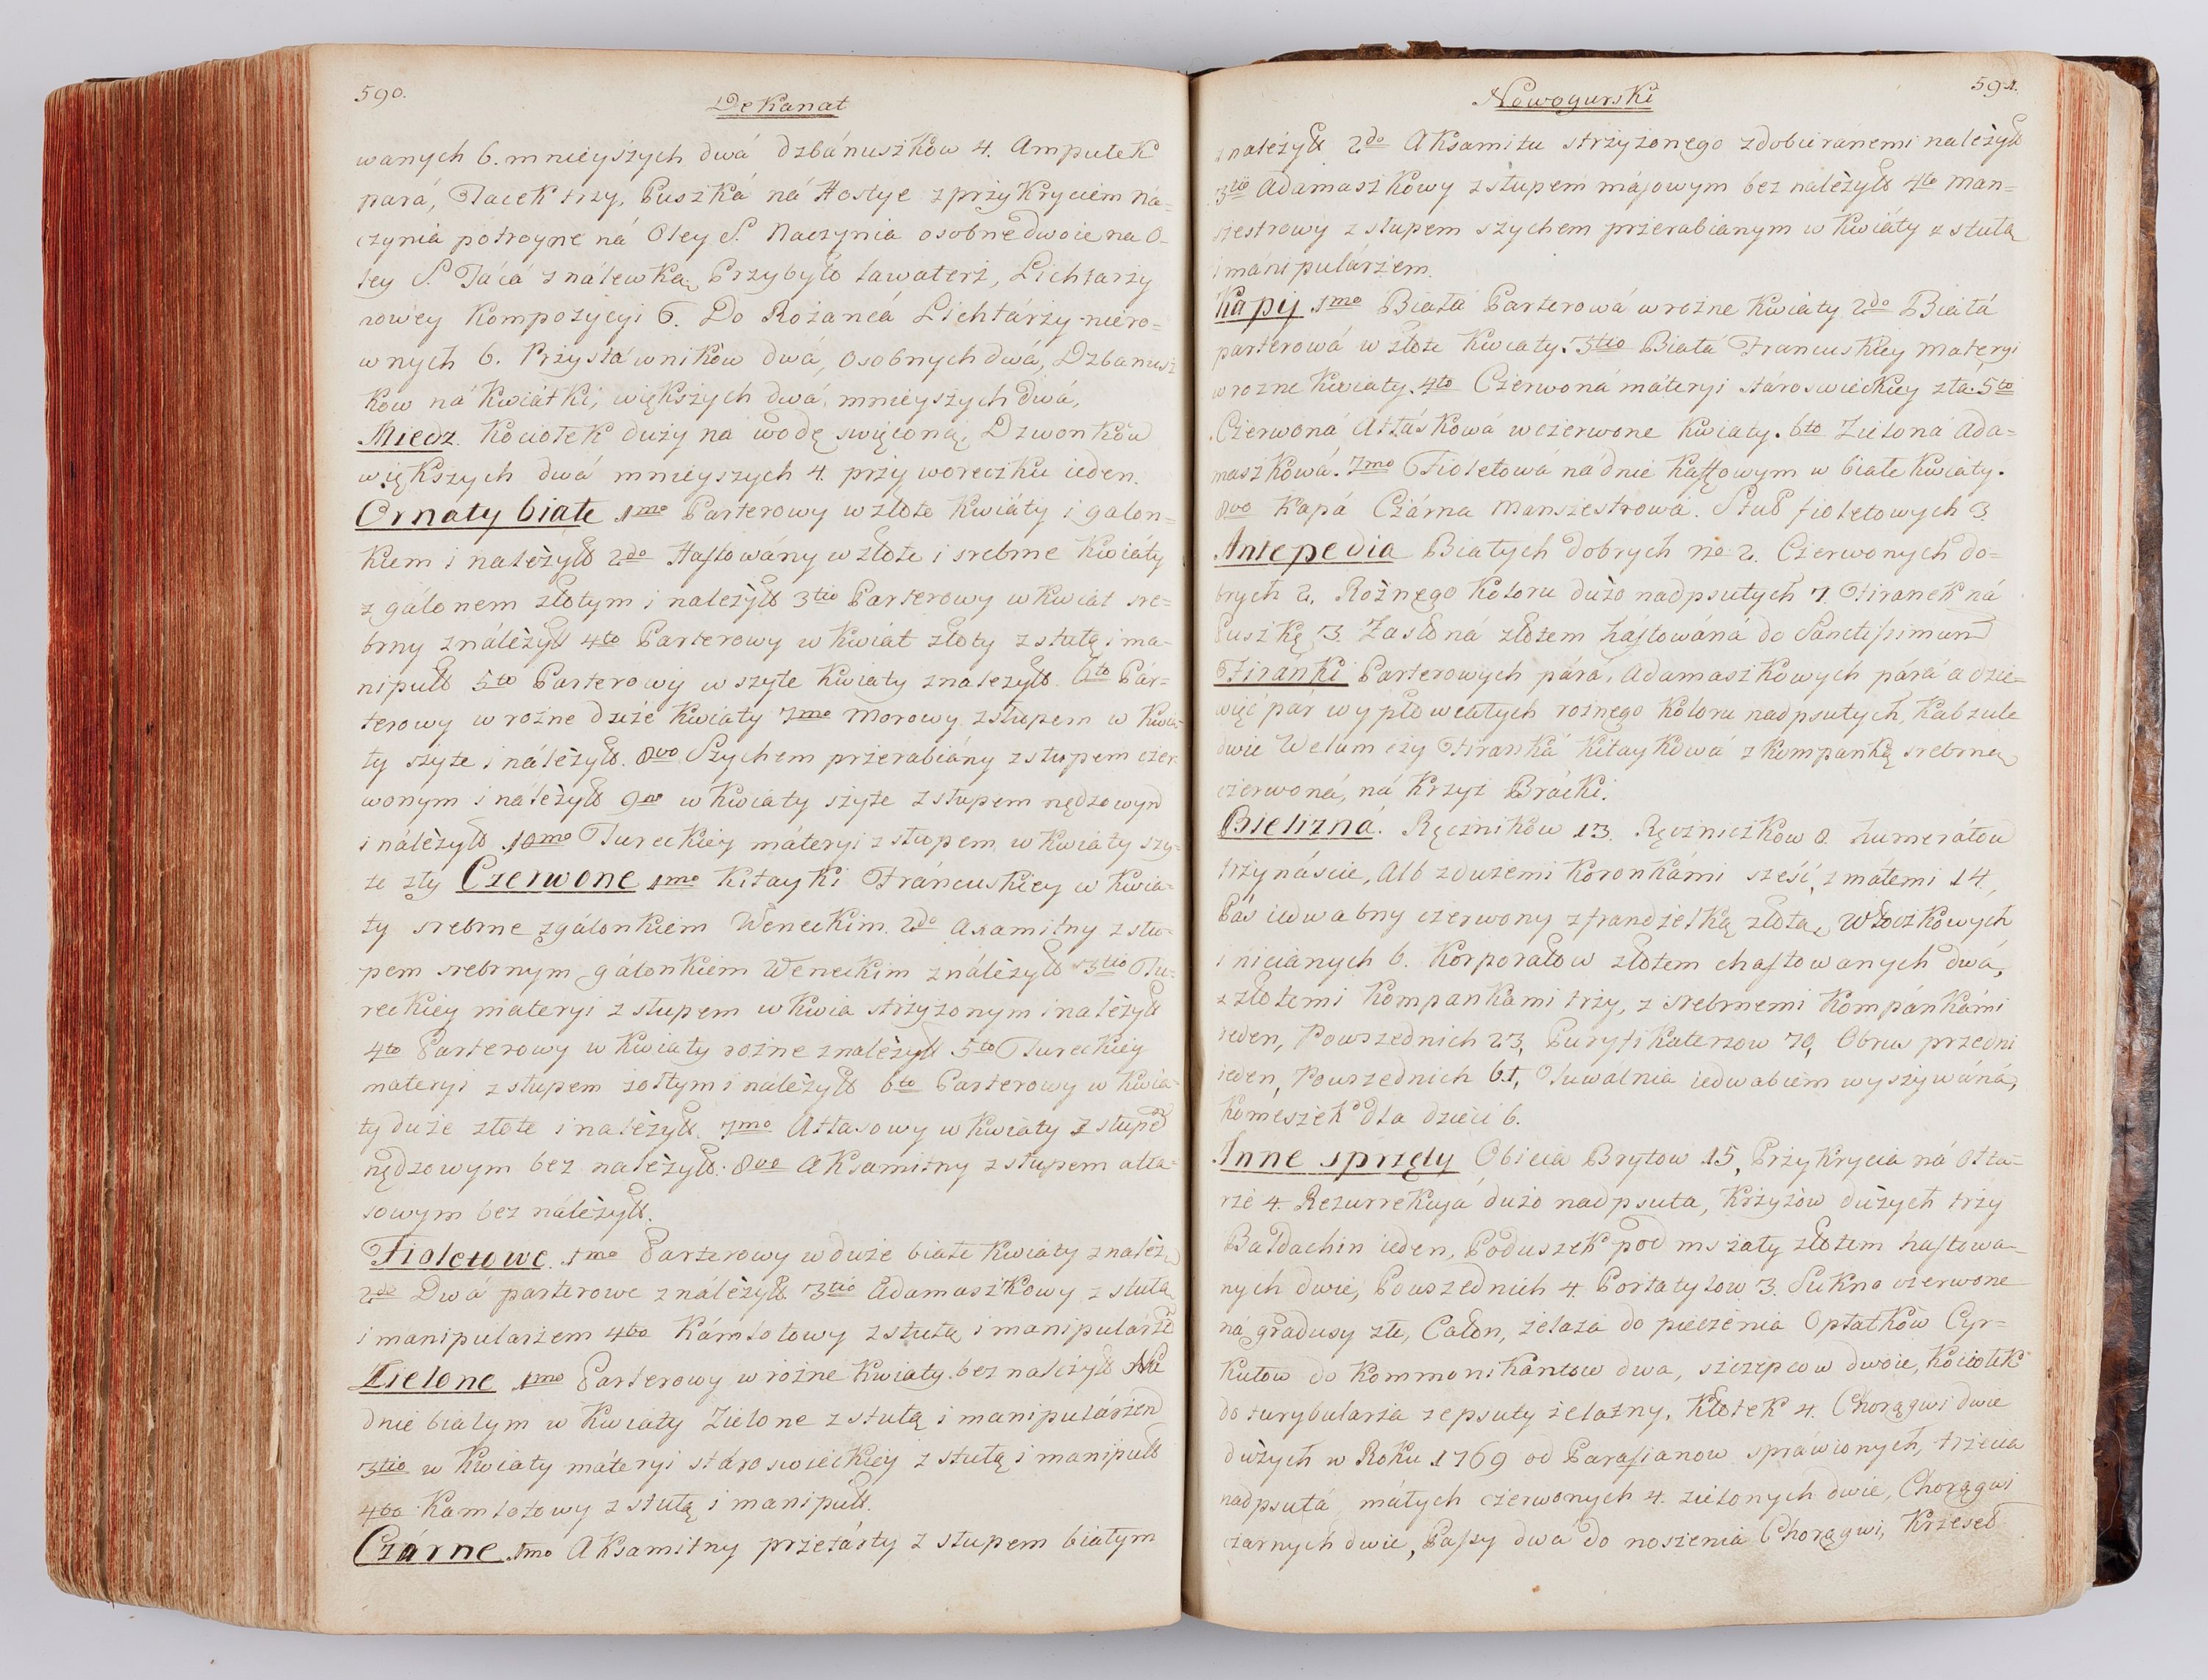 590.
Dekanat
wanych 6. mnieyszych dwá dzbánuszków 4. Ampułek
pará, Tacek trzy, Puszká ná Hostye z przykryciem Ná-
czynia potroyne ná Oley S. Naczynia osobne dwoie na O-
ley S. Tácá z nálewką Przybyło Lawaterz, Lichtarzy
nowey kompozycyi 6. Do Rożańcá Lichtárzy niero-
wnych 6. Przystáwników dwá, osobnych dwá, Dzbanusz
ków ná kwiátki, większych dwá, mnieyszych dwá,
Miedz. Kociołek duży na wodę święconą, Dzwonków
większych dwá mnieyszych 4. przy woreczku ieden.
Ornaty białe 1mo Parterowy w złote kwiáty i galon-
kiem i należyt 2do Haftowány w złote i srebrne kwiáty
z gálonem złotym i należyt 3tio Parterowy w kwiat sre-
brny z náleżyt 4to Parterowy w kwiat złoty z stułą i ma-
nipuł 5to Parterowy w szyte kwiaty z należyt. 6to Pár-
terowy w rożne duże kwiaty 7mo Morowy z słupem w kwia-
ty szyte i náleżyt. 8vo Szychem przerabiány z słupem czer-
wonym i náleżyt 9no w kwiaty szyte z słupem nędzowym
i náleżyt 10mo Tureckiey máteryi z słupem w kwiaty szy-
te zły Czerwone 1mo Kitayki Fráncuskiey w kwia-
ty srebrne z gálonkiem Weneckim. 2do Axamitny z słu-
pem srebrnym gálonkiem Weneckim z náleżyt 3tio Tu-
reckiey materyi z słupem w kwia strzyżonym i należyt
4to Parterowy w kwiaty rożne z należyt 5to Tureckiey
materyi z słupem żołtym i náleżyt 6to Parterowy w kwia-
ty duże złote i należyt. 7mo Atłasowy w kwiáty z słupē
nędzowym bez należyt. 8vo Aksamitny z słupem atła-
sowym bez náleżyt.
Fioletowe. 1mo Parterowy w duże białe kwiaty z należ
2do Dwá parterowe z náleżyt. 3tio Adamaszkowy z stułą
i manipularzem 4to Kámlotowy z stułą i manipularzē
Zielone 1mo Parterowy w rożne kwiaty bez należyt Na
dnie białym w kwiaty zielone z stułą i manipulárzem
3tio w kwiaty máteryi stároswieckiey z stułą i manipuł
4to Kamlotowy z stułą i manipuł.
Czárne 1mo Aksamitny przetárty z słupem białym
Nowogurski
591.
z należyt 2do Aksamitu strzyżonego z dobieranemi należyt
3tio Adamaszkowy z słupem májowym bez náleżyt 4to Man-
szestrowy z słupem szychem przerabianym w kwiáty z stułą
i mánipulárzem.
Kapy 1mo Białá Parterowá w rożne kwiaty 2do Białá
parterowá w złote kwiaty. 3tio Białá Francuskiey Materyi
w rozne kwiaty. 4to Czerwoná máteryi stároswieckiey zła. 5to
Czerwoná Atłáskowá w czerwone kwiaty. 6to Zielona Ada-
maszkowá. 7mo Fioletowá ná dnie kaftowym w białe kwiaty.
8vo Kapá Czárna Manszestrowá. Stuł fioletowych 3.
Antepedia Białych dobrych no 2. Czerwonych do-
brych 2. Rożnego koloru dużo nadpsutych 7. Firanek ná
Puszkę 3. Zasłoná złotem háftowáná do Sanctissimum
Firánki Parterowych párá, Adamaszkowych párá a dzie-
więć par wypłowiałych rożnego koloru nadpsutych, Kabzule
dwie Welum czy Firanká kitaykowá z kompanką srebrną
czerwoná, ná Krzyż Brácki.
Bielizná. Ręczników 13. Ręczniczków 8. humerátow
trzynáście, Alb z dużemi koronkámi sześć, z małemi 14,
Pás iedwabny czerwony z frandzelką złotą, Włoczkowych
i nicianych 6. Korporałow złotem chaftowanych dwá,
z złotemi kompankami trzy, z srebrnemi kompánkámi
ieden, Powszednich 23, Puryfikaterzow 70, Obrus przedni
ieden, Powszednich 61, Tuwalnia iedwabiem wyszywáná,
Komeszek dla dzieci 6.
Inne sprzędy Obicia Brytow 15, Przykrycia ná Ołta-
rze 4. Rezurrekcyá dużo nadpsuta, Krzyżow dużych trzy
Bałdachin ieden, Poduszek pod mszały złotem haftowa-
nych dwie, Powszednich 4. Portatylow 3. Sukno czerwone
ná gradusy złe, Całon, żelaza do pieczenia Opłatków Cyr-
kułow do kommonikántow dwa, szczepcow dwoie, Kociołek
do turybularza zepsuty żelazny, Kłotek 4. Chorągwi dwie
dużych w Roku 1769 od Parafianow spráwionych, trzecia
nadpsutá, małych czerwonych 4. zielonych dwie, Chorągwi
czarnych dwie, Passy dwa do noszenia Chorągwi, Krzeseł